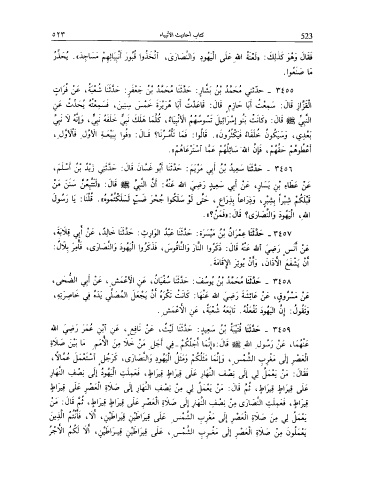 ٥٢٣ كتاب أحاديث الأنبياء 523
فقال وَهُوَ كَذٰلِكَ: «لَعْنَةُ اللهِ عَلَى الْيَهُودِ وَالنَّصَارَى، اتَّخَذُوا قُبُورَ أَنْبِيَائِهِمْ مَسَاجِدَ». يُحَذِّرُ
مَا صَنَعُوا.
٣٤٥٥ - حَدَّثَنِي مُحَمَّدُ بْنُ بَشَّارٍ: حَدَّثَنَا مُحَمَّدُ بْنُ جَعْفَرٍ: حَدَّثَنَا شُعْبَةُ، عَنْ فُرَاتٍ
الْقَزَّازِ قَالَ: سَمِعْتُ أَبَا حَازِمٍ قَالَ: قَاعَدْتُ أَبَا هُرَيْرَةَ خَمْسَ سِنِينَ، فَسَمِعْتُهُ يُحَدِّثُ عَنِ
النَّبِيِّ ﷺ قَالَ: «كَانَتْ بَنُو إِسْرَائِيلَ تَسُوسُهُمُ الْأَنْبِيَاءُ، كُلَّمَا هَلَكَ نَبِيٌّ خَلَفَهُ نَبِيٌّ، وَإِنَّهُ لَا نَبِيَّ
بَعْدِي، وَسَيَكُونُ خُلَفَاءُ فَيَكْثُرُونَ». قَالُوا: فَمَا تَأْمُرُنَا؟ قَالَ: «فُوا بِبَيْعَةِ الْأَوَّلِ، فَالْأَوَّلِ،
أَعْطُوهُمْ حَقَّهُمْ، فَإِنَّ اللهَ سَائِلُهُمْ عَمَّا اسْتَرْعَاهُمْ».
٣٤٥٦ - حَدَّثَنَا سَعِيدُ بْنُ أَبِي مَرْيَمَ: حَدَّثَنَا أَبُو غَسَّانَ قَالَ: حَدَّثَنِي زَيْدُ بْنُ أَسْلَمَ،
عَنْ عَطَاءِ بْنِ يَسَارٍ، عَنْ أَبِي سَعِيدٍ رَضِيَ اللهُ عَنْهُ: أَنَّ النَّبِيَّ ﷺ قَالَ: «لَتَتَّبِعُنَّ سَنَنَ مَنْ
قَبْلَكُمْ شِبْرًا بِشِبْرٍ، وَذِرَاعًا بِذِرَاعٍ، حَتَّى لَوْ سَلَكُوا جُحْرَ ضَبٍّ لَسَلَكْتُمُوهُ». قُلْنَا: يَا رَسُولَ
اللهِ، الْيَهُودَ وَالنَّصَارَى؟ قَالَ: «فَمَنْ؟».
٣٤٥٧ - حَدَّثَنَا عِمْرَانُ بْنُ مَيْسَرَةَ: حَدَّثَنَا عَبْدُ الْوَارِثِ: حَدَّثَنَا خَالِدٌ، عَنْ أَبِي قِلَابَةَ،
عَنْ أَنَسٍ رَضِيَ اللهُ عَنْهُ قَالَ: ذَكَرُوا النَّارَ وَالنَّاقُوسَ، فَذَكَرُوا الْيَهُودَ وَالنَّصَارَى، فَأُمِرَ بِلَالٌ:
أَنْ يَشْفَعَ الْأَذَانَ، وَأَنْ يُوتِرَ الْإِقَامَةَ.
٣٤٥٨ - حَدَّثَنَا مُحَمَّدُ بْنُ يُوسُفَ: حَدَّثَنَا سُفْيَانُ، عَنِ الْأَعْمَشِ، عَنْ أَبِي الضُّحَى،
عَنْ مَسْرُوقٍ، عَنْ عَائِشَةَ رَضِيَ اللهُ عَنْهَا: كَانَتْ تَكْرَهُ أَنْ يَجْعَلَ الْمُصَلِّي يَدَهُ فِي خَاصِرَتِهِ،
وَتَقُولُ: إِنَّ الْيَهُودَ تَفْعَلُهُ. تَابَعَهُ شُعْبَةُ، عَنِ الْأَعْمَشِ.
٣٤٥٩ - حَدَّثَنَا قُتَيْبَةُ بْنُ سَعِيدٍ: حَدَّثَنَا لَيْثٌ، عَنْ نَافِعٍ، عَنِ ابْنِ عُمَرَ رَضِيَ اللهُ
عَنْهُمَا، عَنْ رَسُولِ اللهِ ﷺ قَالَ: «إِنَّمَا أَجَلُكُمْ فِي أَجَلِ مَنْ خَلَا مِنَ الْأُمَمِ مَا بَيْنَ صَلَاةِ
الْعَصْرِ إِلَى مَغْرِبِ الشَّمْسِ، وَإِنَّمَا مَثَلُكُمْ وَمَثَلُ الْيَهُودِ وَالنَّصَارَى، كَرَجُلٍ اسْتَعْمَلَ عُمَّالًا،
فَقَالَ: مَنْ يَعْمَلُ لِي إِلَى نِصْفِ النَّهَارِ عَلَى قِيرَاطٍ قِيرَاطٍ، فَعَمِلَتِ الْيَهُودُ إِلَى نِصْفِ النَّهَارِ
عَلَى قِيرَاطٍ قِيرَاطٍ، ثُمَّ قَالَ: مَنْ يَعْمَلُ لِي مِنْ نِصْفِ النَّهَارِ إِلَى صَلَاةِ الْعَصْرِ عَلَى قِيرَاطٍ
قِيرَاطٍ، فَعَمِلَتِ النَّصَارَى مِنْ نِصْفِ النَّهَارِ إِلَى صَلَاةِ الْعَصْرِ عَلَى قِيرَاطٍ قِيرَاطٍ، ثُمَّ قَالَ: مَنْ
يَعْمَلُ لِي مِنْ صَلَاةِ الْعَصْرِ إِلَى مَغْرِبِ الشَّمْسِ عَلَى قِيرَاطَيْنِ قِيرَاطَيْنِ، أَلَا، فَأَنْتُمُ الَّذِينَ
يَعْمَلُونَ مِنْ صَلَاةِ الْعَصْرِ إِلَى مَغْرِبِ الشَّمْسِ، عَلَى قِيرَاطَيْنِ قِيرَاطَيْنِ، أَلَا لَكُمُ الْأَجْرُ